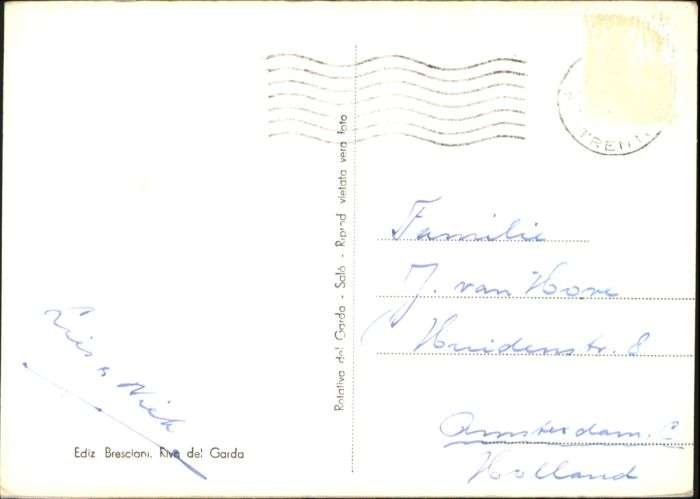 TRENT
Rotativa del Garda - Salò - Riprod vietata vera foto
Familie
J. van Hove
Huidenstr. 8
Amsterdam. C
Holland
Lies & Niek
Ediz Bresciani. Riva del Garda